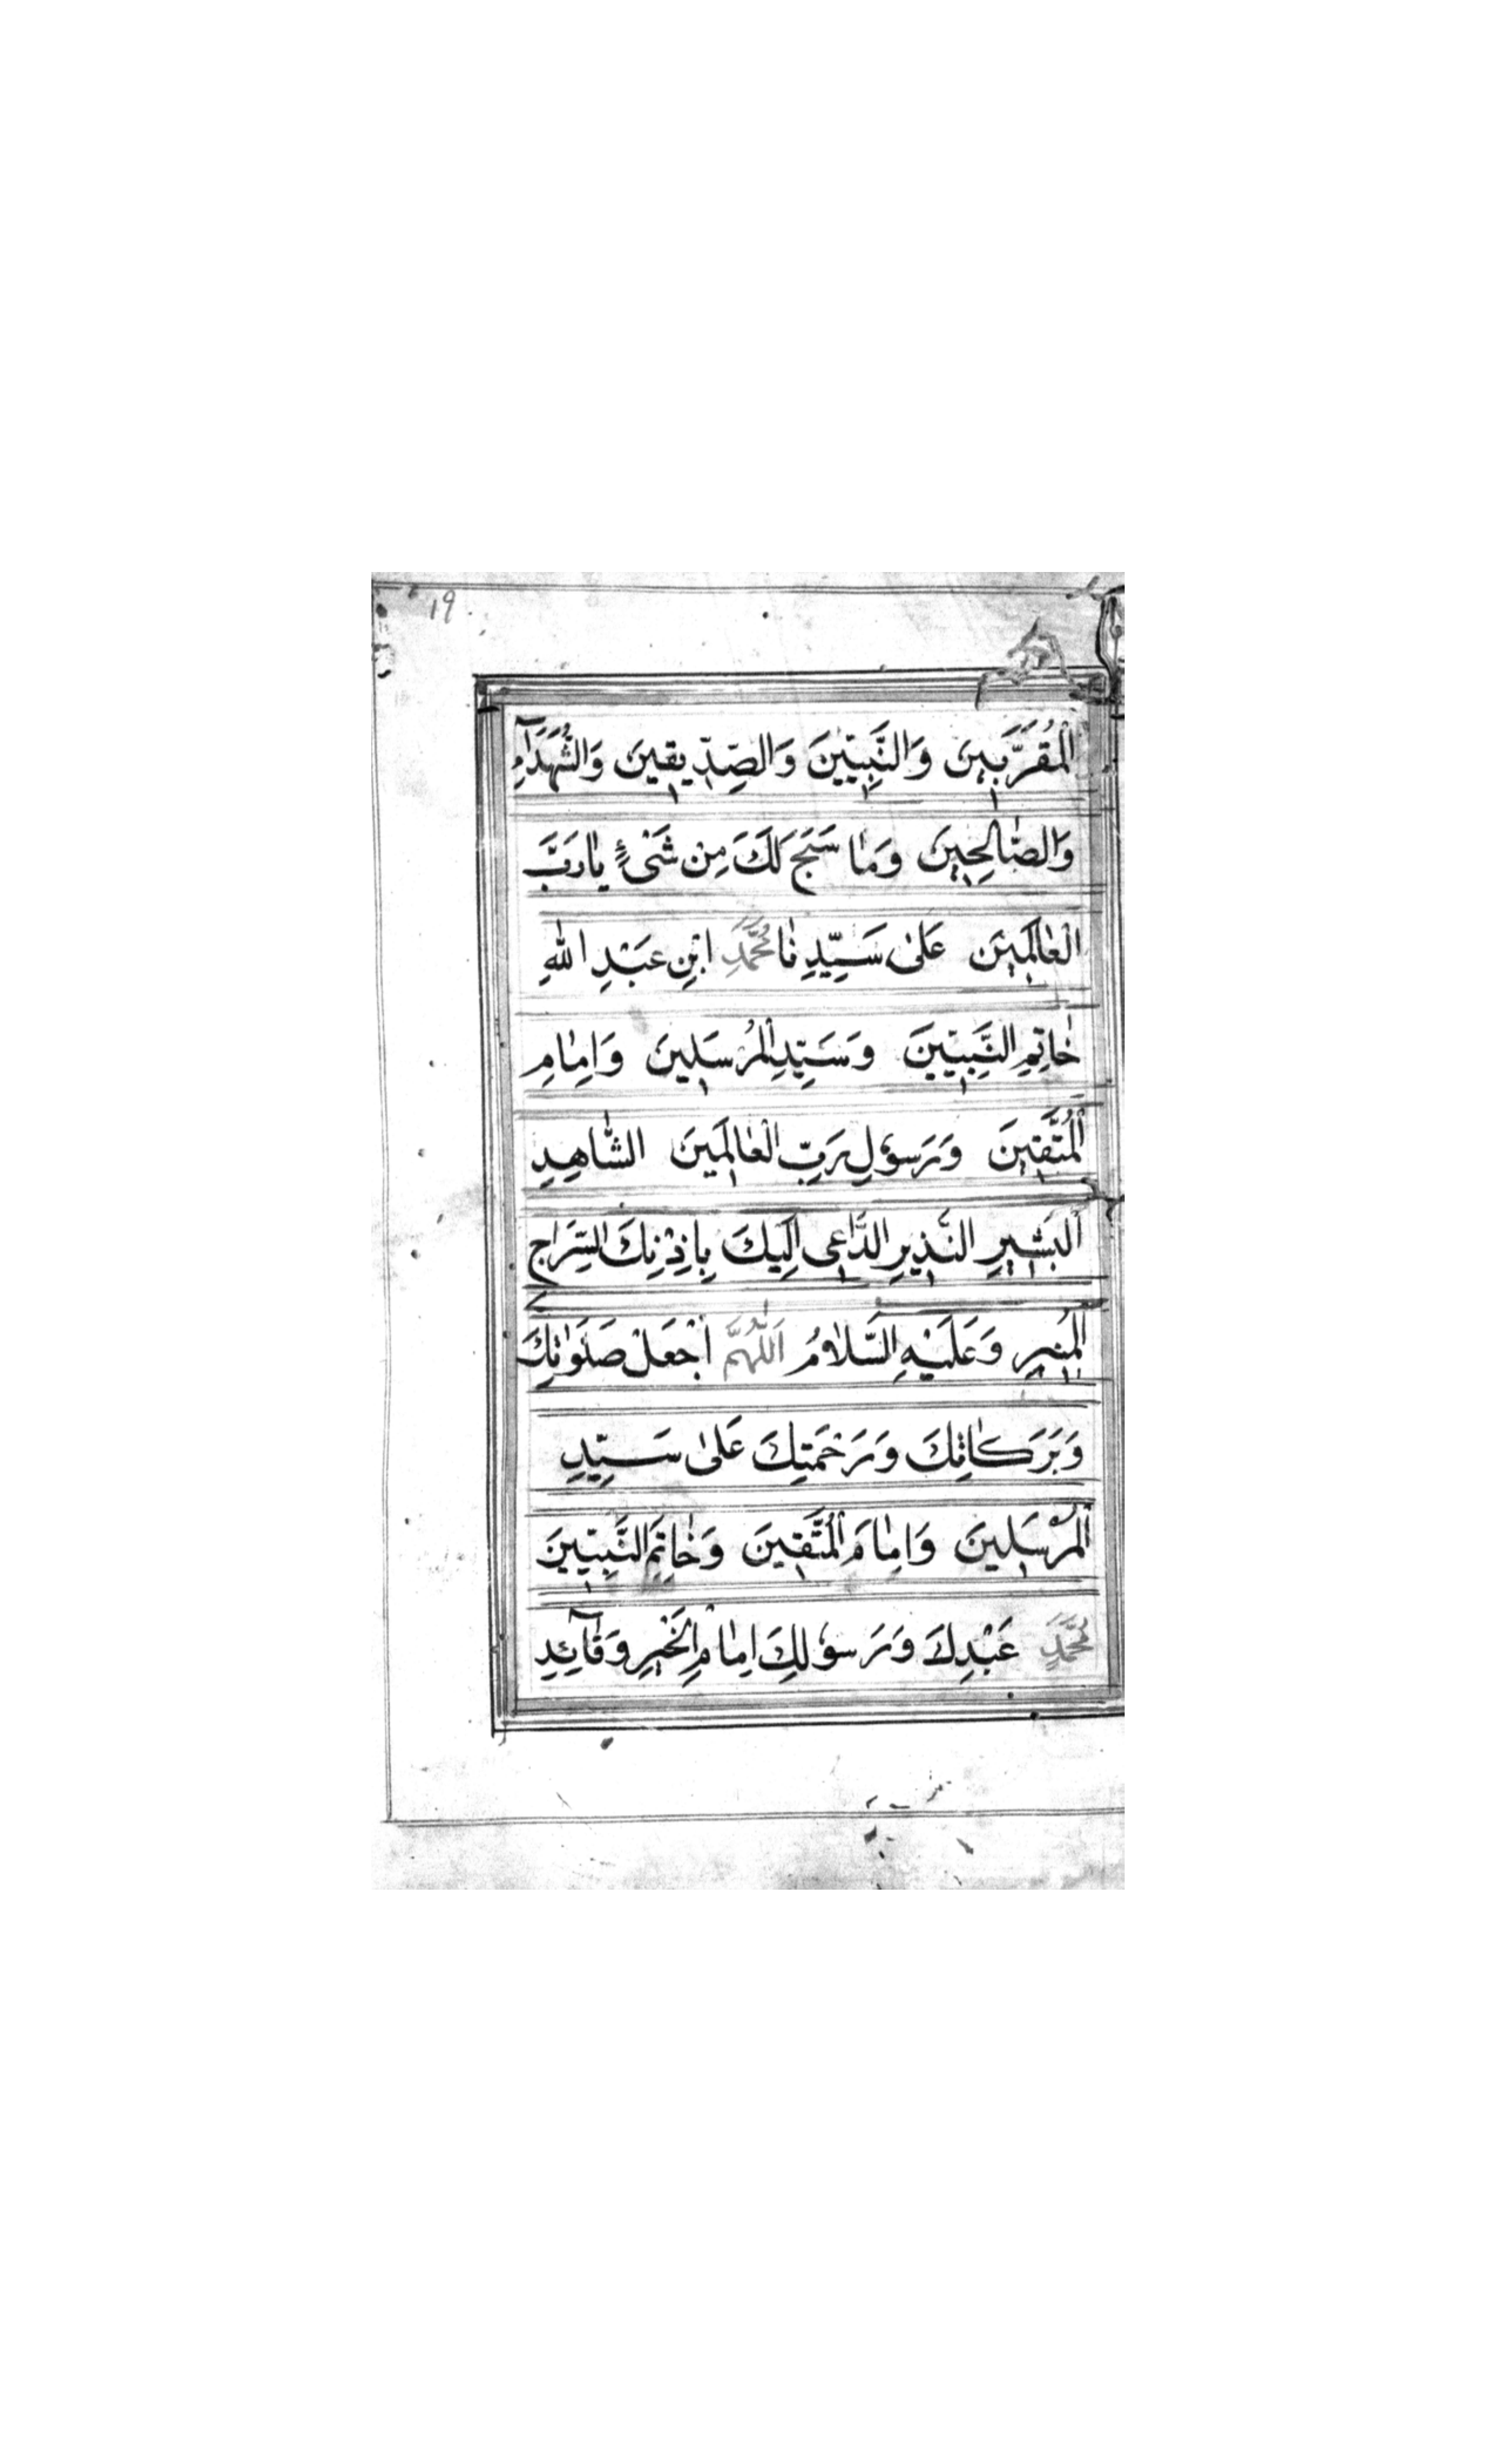 ١٩
الْمُقَرَّبِينَ وَالنَّبِيِّينَ وَالصِّدِّيقِينَ وَالشُّهَدَآءِ
وَالصَّالِحِينَ وَمَا سَبَّحَ لَكَ مِنْ شَىْءٍ يَارَبَّ
الْعَالَمِينَ عَلَى سَيِّدِنَا مُحَمَّدِ ابْنِ عَبْدِ اللهِ
خَاتِمِ النَّبِيِّينَ وَسَيِّدِ الْمُرْسَلِينَ وَاِمَامِ
الْمُتَّقِينَ وَرَسُولِ رَبِّ الْعَالَمِينَ الشَّاهِدِ
الْبَشِيرِ النَّذِيرِ الدَّاعِى اِلَيْكَ بِاِذْنِكَ السِّرَاجِ
الْمُنِيرِ وَعَلَيْهِ السَّلَامُ اَللّٰهُمَّ اجْعَلْ صَلَوَاتِكَ
وَبَرَكَاتِكَ وَرَحْمَتِكَ عَلَى سَيِّدِ
الْمُرْسَلِينَ وَاِمَامَ الْمُتَّقِينَ وَخَاتِمَ النَّبِيِّينَ
مُحَمَّدٍ عَبْدِكَ وَرَسُولِكَ اِمَامِ الْخَيْرِ وَقَآئِدِ